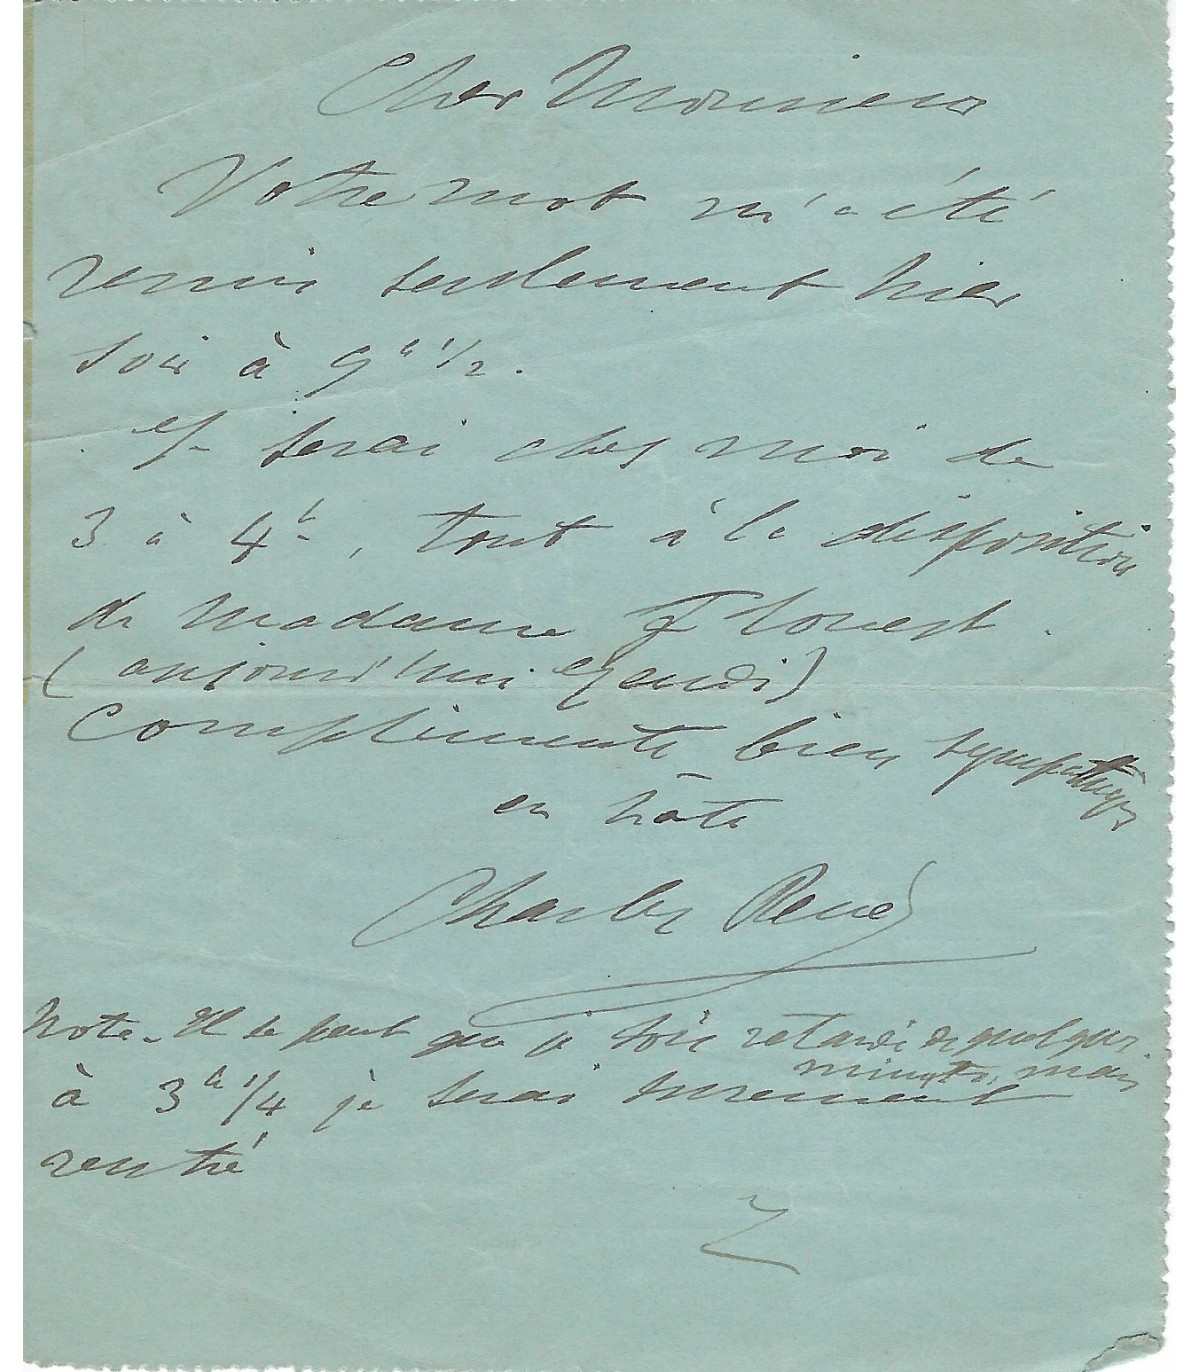 Cher Monsieur
Votre mot m'a été
remis seulement hier
soir à 9h 1/2.
Je serai chez moi de
3 à 4h, tout à la disposition
de Madame Flouest.
(aujourd'hui Jeudi)
Compliments bien sympathiques
en hâte
Charles René
Note - Il se peut que je sois retardé de quelques
minutes, mais
à 3h 1/4 je serai surement
rentré